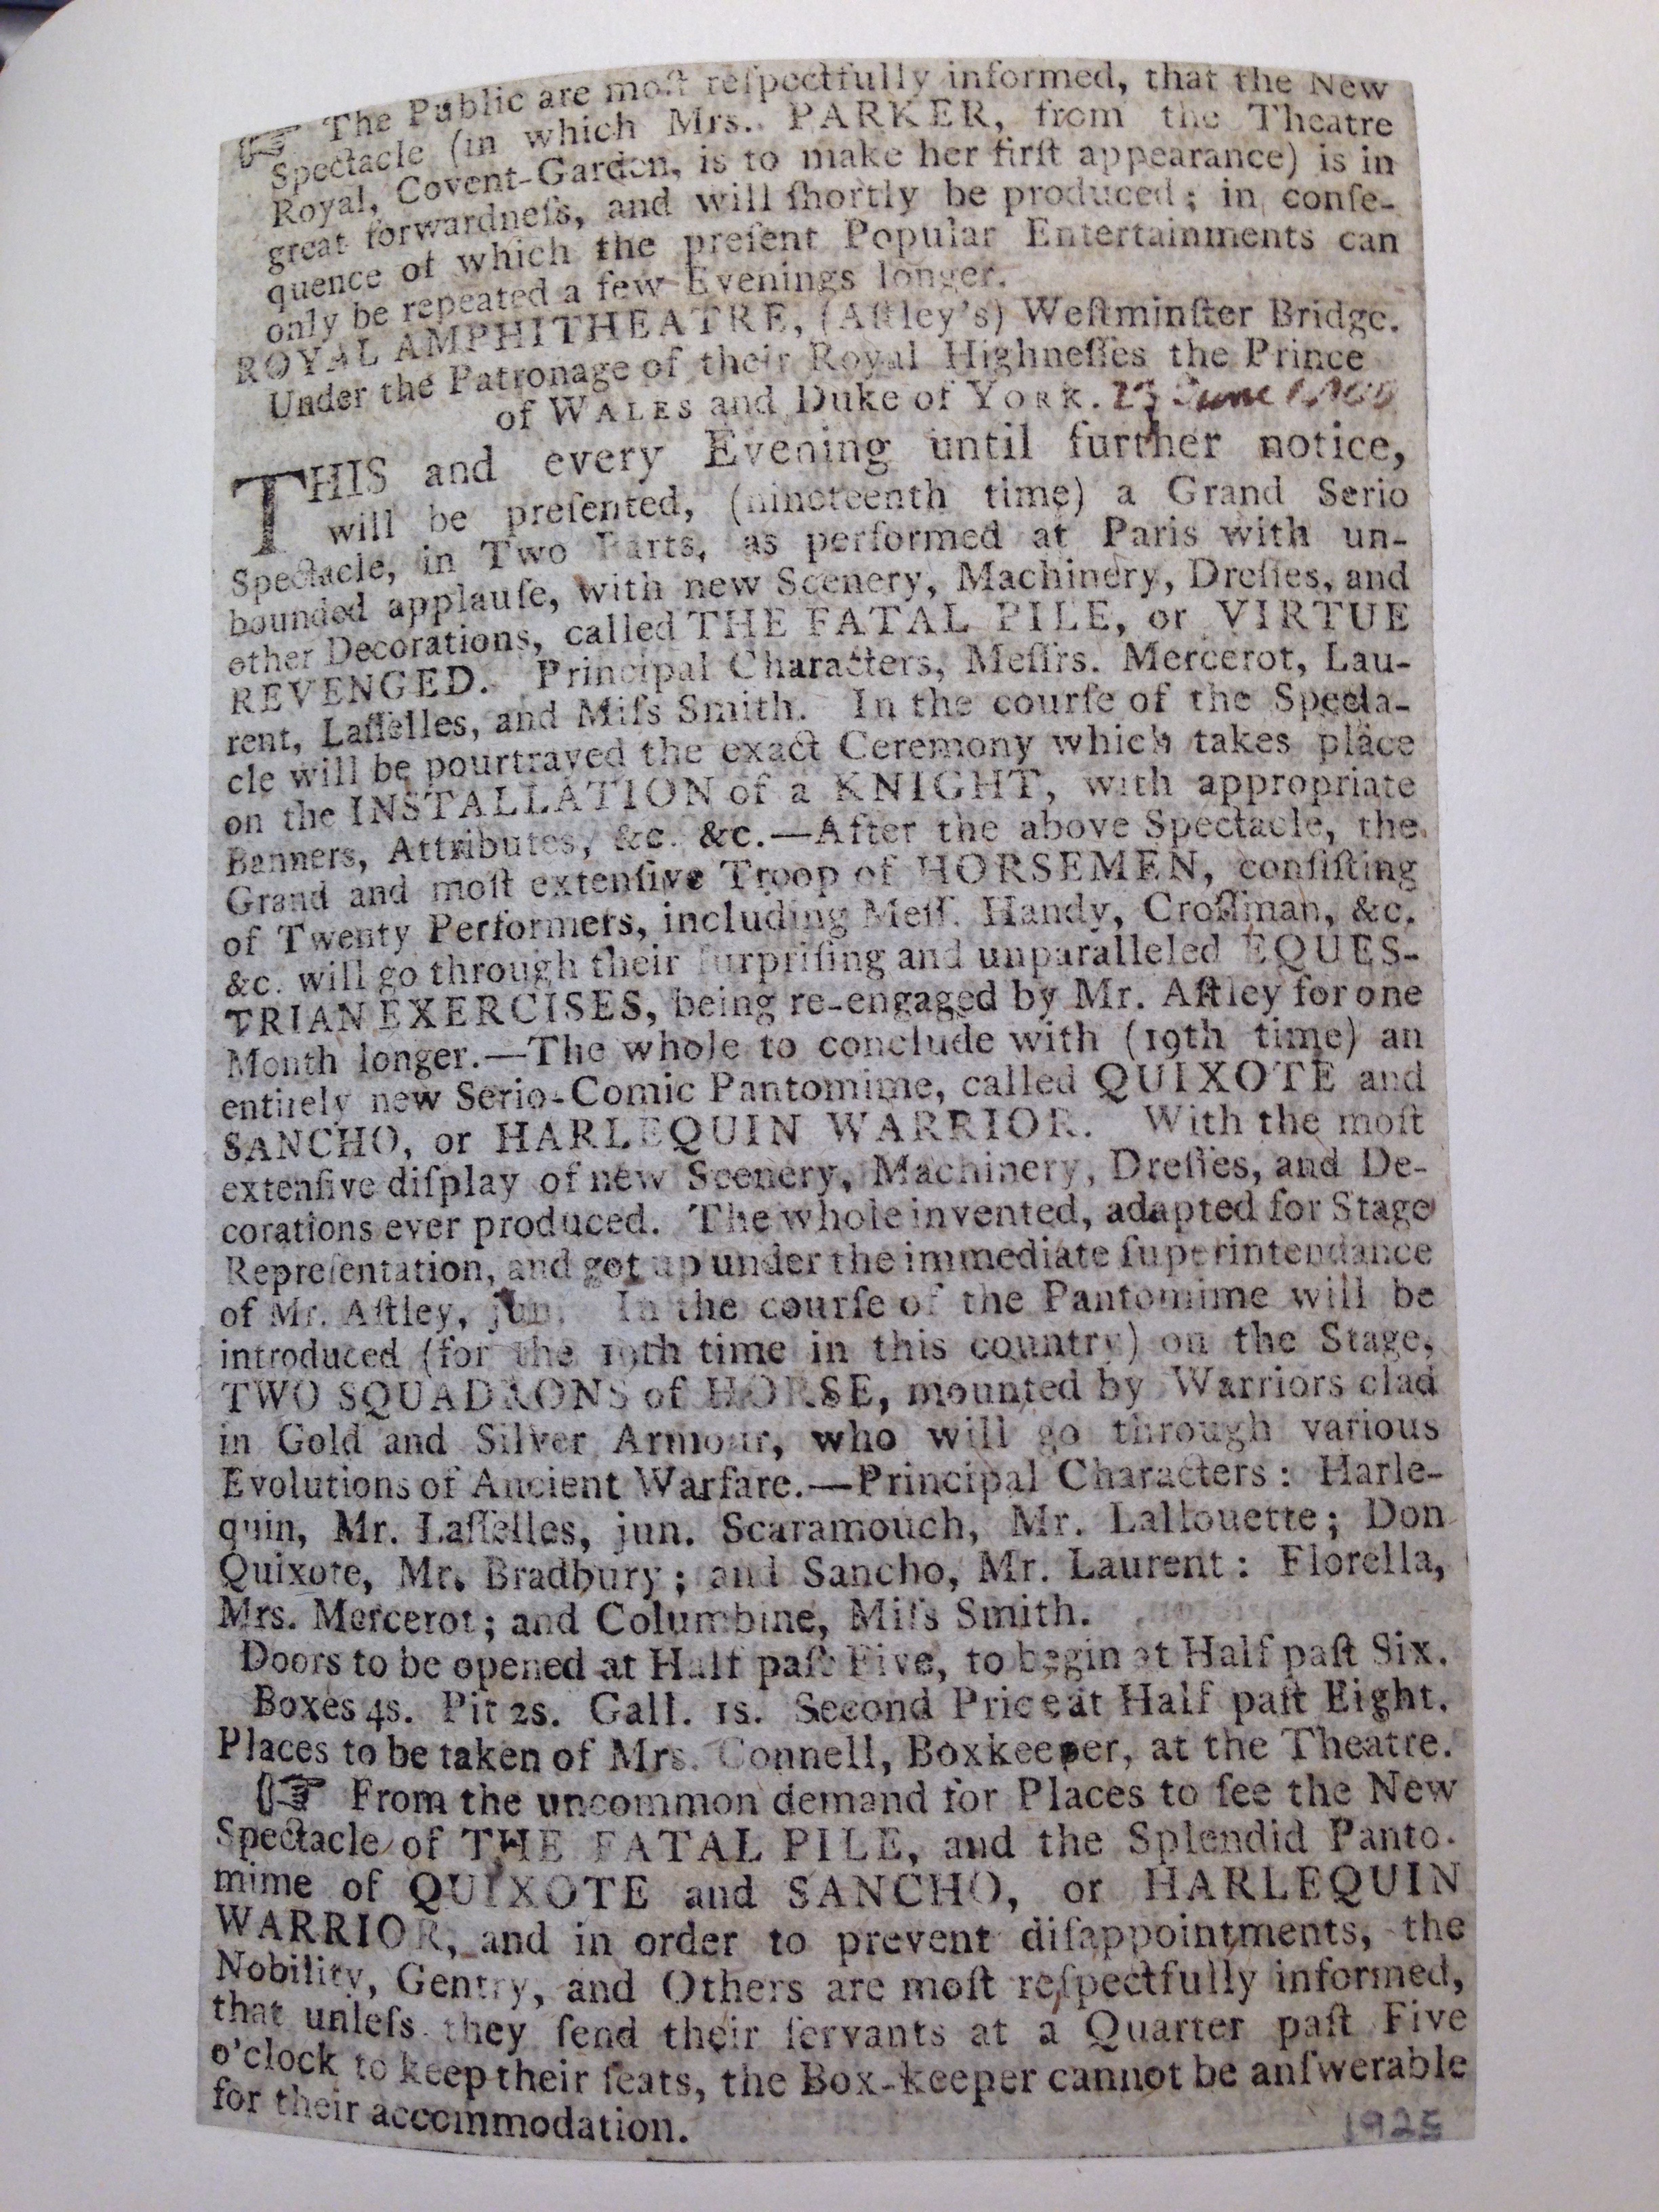 ☞ The Public are moſt reſpectfully informed, that the New
Spectacle (in which Mrs. PARKER, from the Theatre
Royal, Covent-Garden, is to make her firſt appearance) is in
great forwardneſs, and will ſhortly be produced; in conſe-
quence of which the preſent Popular Entertainments can
only be repeated a few Evenings longer.
ROYAL AMPHITHEATRE, (Aſtley's) Weſtminſter Bridge.
Under the Patronage of their Royal Highneſſes the Prince
of WALES and Duke of YORK. 23 June
THIS and every Evening until further notice,
will be preſented, (nineteenth time) a Grand Serio
Spectacle, in Two Parts, as performed at Paris with un-
bounded applauſe, with new Scenery, Machinery, Dreſſes, and
other Decorations, called THE FATAL PILE, or VIRTUE
REVENGED. Principal Characters, Meſſrs. Mercerot, Lau-
rent, Laſſelles, and Miſs Smith. In the courſe of the Specta-
cle will be pourtrayed the exact Ceremony which takes place
on the INSTALLATION of a KNIGHT, with appropriate
Banners, Attributes, &c. &c.—After the above Spectacle, the
Grand and moſt extenſive Troop of HORSEMEN, conſiſting
of Twenty Performers, including Meſſ. Handy, Croſſman, &c.
&c. will go through their ſurpriſing and unparalleled EQUES-
TRIAN EXERCISES, being re-engaged by Mr. Aſtley for one
Month longer.—The whole to conclude with (19th time) an
entirely new Serio-Comic Pantomime, called QUIXOTE and
SANCHO, or HARLEQUIN WARRIOR. With the moſt
extenſive diſplay of new Scenery, Machinery, Dreſſes, and De-
corations ever produced. The whole invented, adapted for Stage
Repreſentation, and got up under the immediate ſuperintendance
of Mr. Aſtley, jun. In the courſe of the Pantomime will be
introduced (for the 19th time in this country) on the Stage,
TWO SQUADRONS of HORSE, mounted by Warriors clad
in Gold and Silver Armour, who will go through various
Evolutions of Ancient Warfare.—Principal Characters: Harle-
quin, Mr. Laſſelles, jun. Scaramouch, Mr. Lallouette; Don
Quixote, Mr. Bradbury; and Sancho, Mr. Laurent: Florella,
Mrs. Mercerot; and Columbine, Miſs Smith.
Doors to be opened at Half paſt Five, to begin at Half paſt Six.
Boxes 4s. Pit 2s. Gall. 1s. Second Price at Half paſt Eight.
Places to be taken of Mrs. Connell, Boxkeeper, at the Theatre.
☞ From the uncommon demand for Places to ſee the New
Spectacle of THE FATAL PILE, and the Splendid Panto-
mime of QUIXOTE and SANCHO, or HARLEQUIN
WARRIOR, and in order to prevent diſappointments, the
Nobility, Gentry, and Others are moſt reſpectfully informed,
that unleſs they ſend their ſervants at a Quarter paſt Five
o'clock to keep their ſeats, the Box-keeper cannot be anſwerable
for their accommodation.
1925